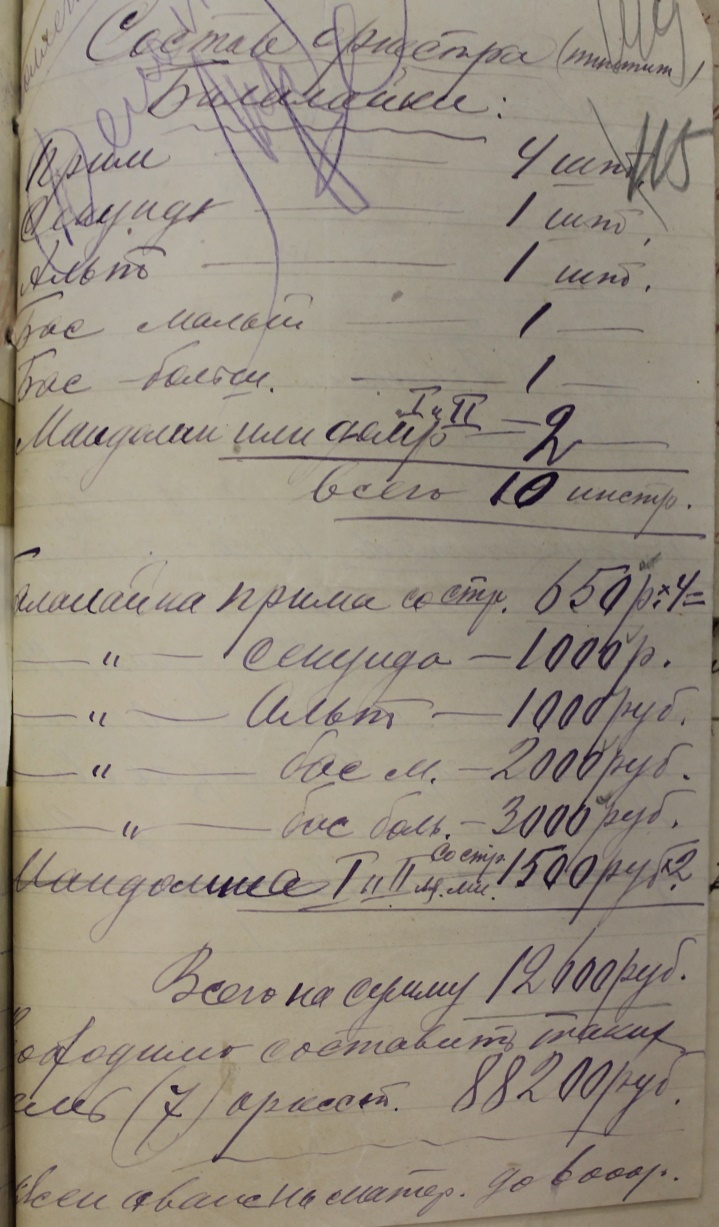 Состав оркестра
Балалайки:
115
Прим — 4 шт.
Секунда — 1 шт.
Альт — 1 шт.
Бас малый — 1 —
Бас больш. — 1 —
Мандолин или домр I и II — 2 —
Всего 10 инстр.
алалайка прима со стр. 650 р. × 4 =
— " — секунда — 1000 р.
— " — Альт — 1000 руб.
— " — бас м. — 2000 руб.
— " — бас боль. — 3000 руб.
Мандолина I и II со стр. 1500 руб × 2
Всего на сумму 12600 руб.
обходимо составить таких
емь (7) оркест. 88200 руб.
матер. до 6000 р.